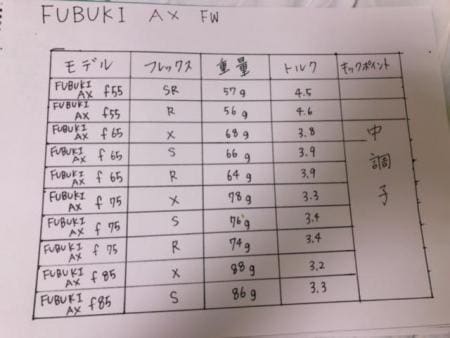 FUBUKI AX FW
モデル フレックス 重量 トルク キックポイント
FUBUKI AX f55 SR 57g 4.5
FUBUKI AX f55 R 56g 4.6
FUBUKI AX f65 X 68g 3.8
FUBUKI AX f65 S 66g 3.9
FUBUKI AX f65 R 64g 3.9
FUBUKI AX f75 X 78g 3.3
FUBUKI AX f75 S 76g 3.4
FUBUKI AX f75 R 74g 3.4
FUBUKI AX f85 X 88g 3.2
FUBUKI AX f85 S 86g 3.3
中調子